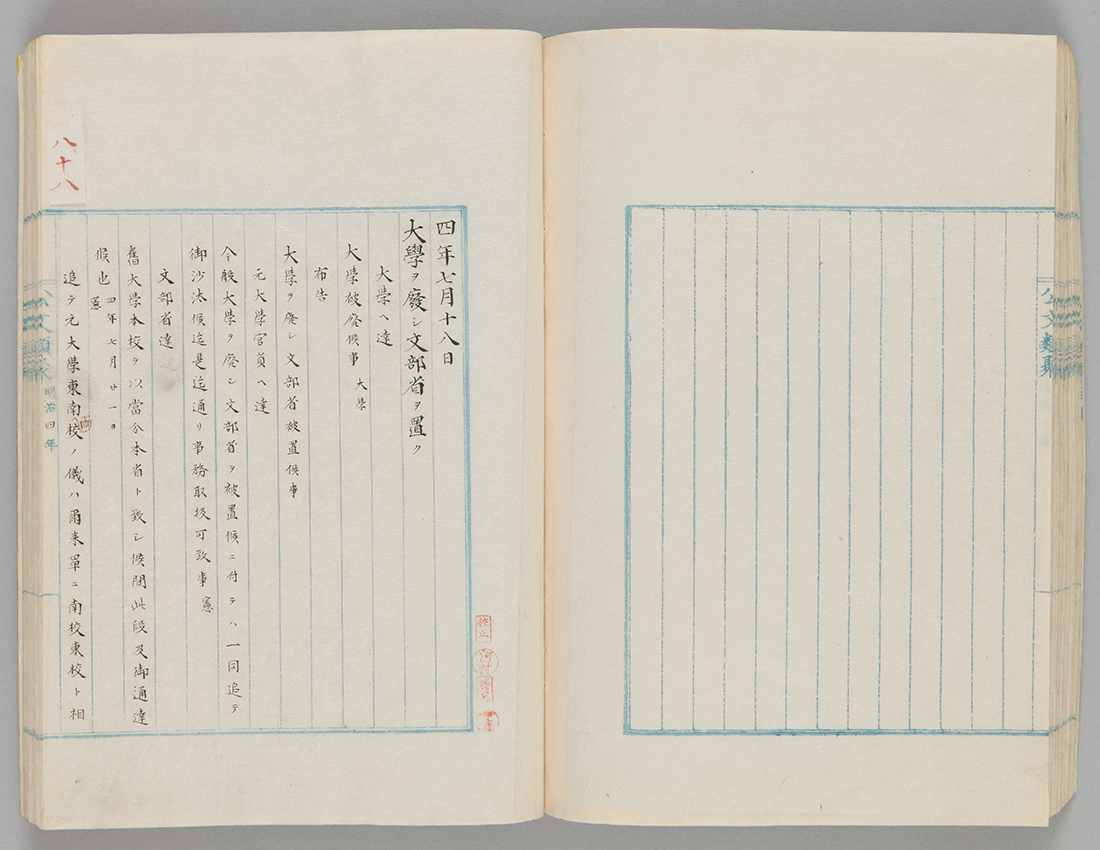 公文類聚
四年七月十八日
大學ヲ廢シ文部省ヲ置ク
大學ヘ達
大學被廢候事 大學
布告
大學ヲ廢シ文部省被置候事
元大學官員ヘ達
今般大學ヲ廢シ文部省ヲ被置候ニ付テハ一同追テ
御沙汰候迄是迄通リ事務取扱可致事 憲
文部省達
舊大學本校ヲ以當分本省ト致シ候間此段及御通達
候也 四年七月廿一日 憲
追テ元大學東南校ノ儀ハ爾来單ニ南校東校ト相
八十八
明治四年
校正
河村